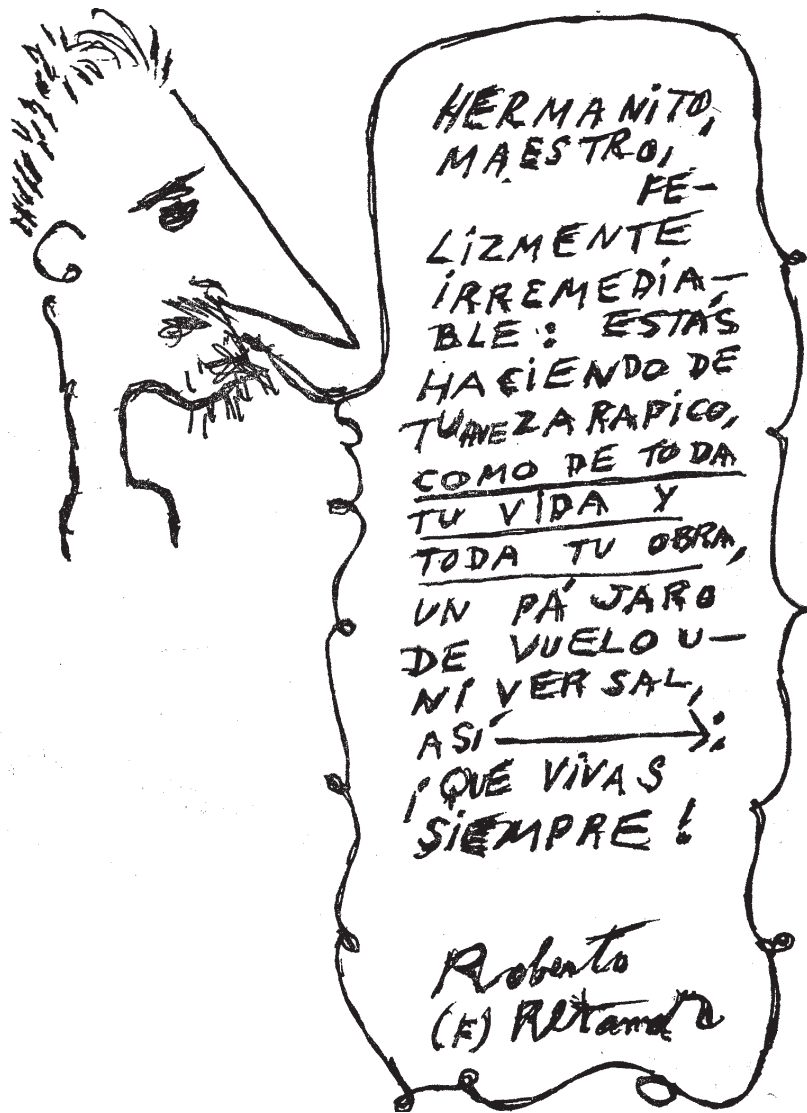 HERMANITO,
MAESTRO,
FE-
LIZMENTE
IRREMEDIA-
BLE: ESTÁS
HACIENDO DE
TU NUEZA RAPICO,
COMO DE TODA
TU VIDA Y
TODA TU OBRA,
UN PÁJARO
DE VUELO U-
NIVERSAL,
ASÍ →:
¡QUE VIVAS
SIEMPRE!
Roberto
(F) Retamar